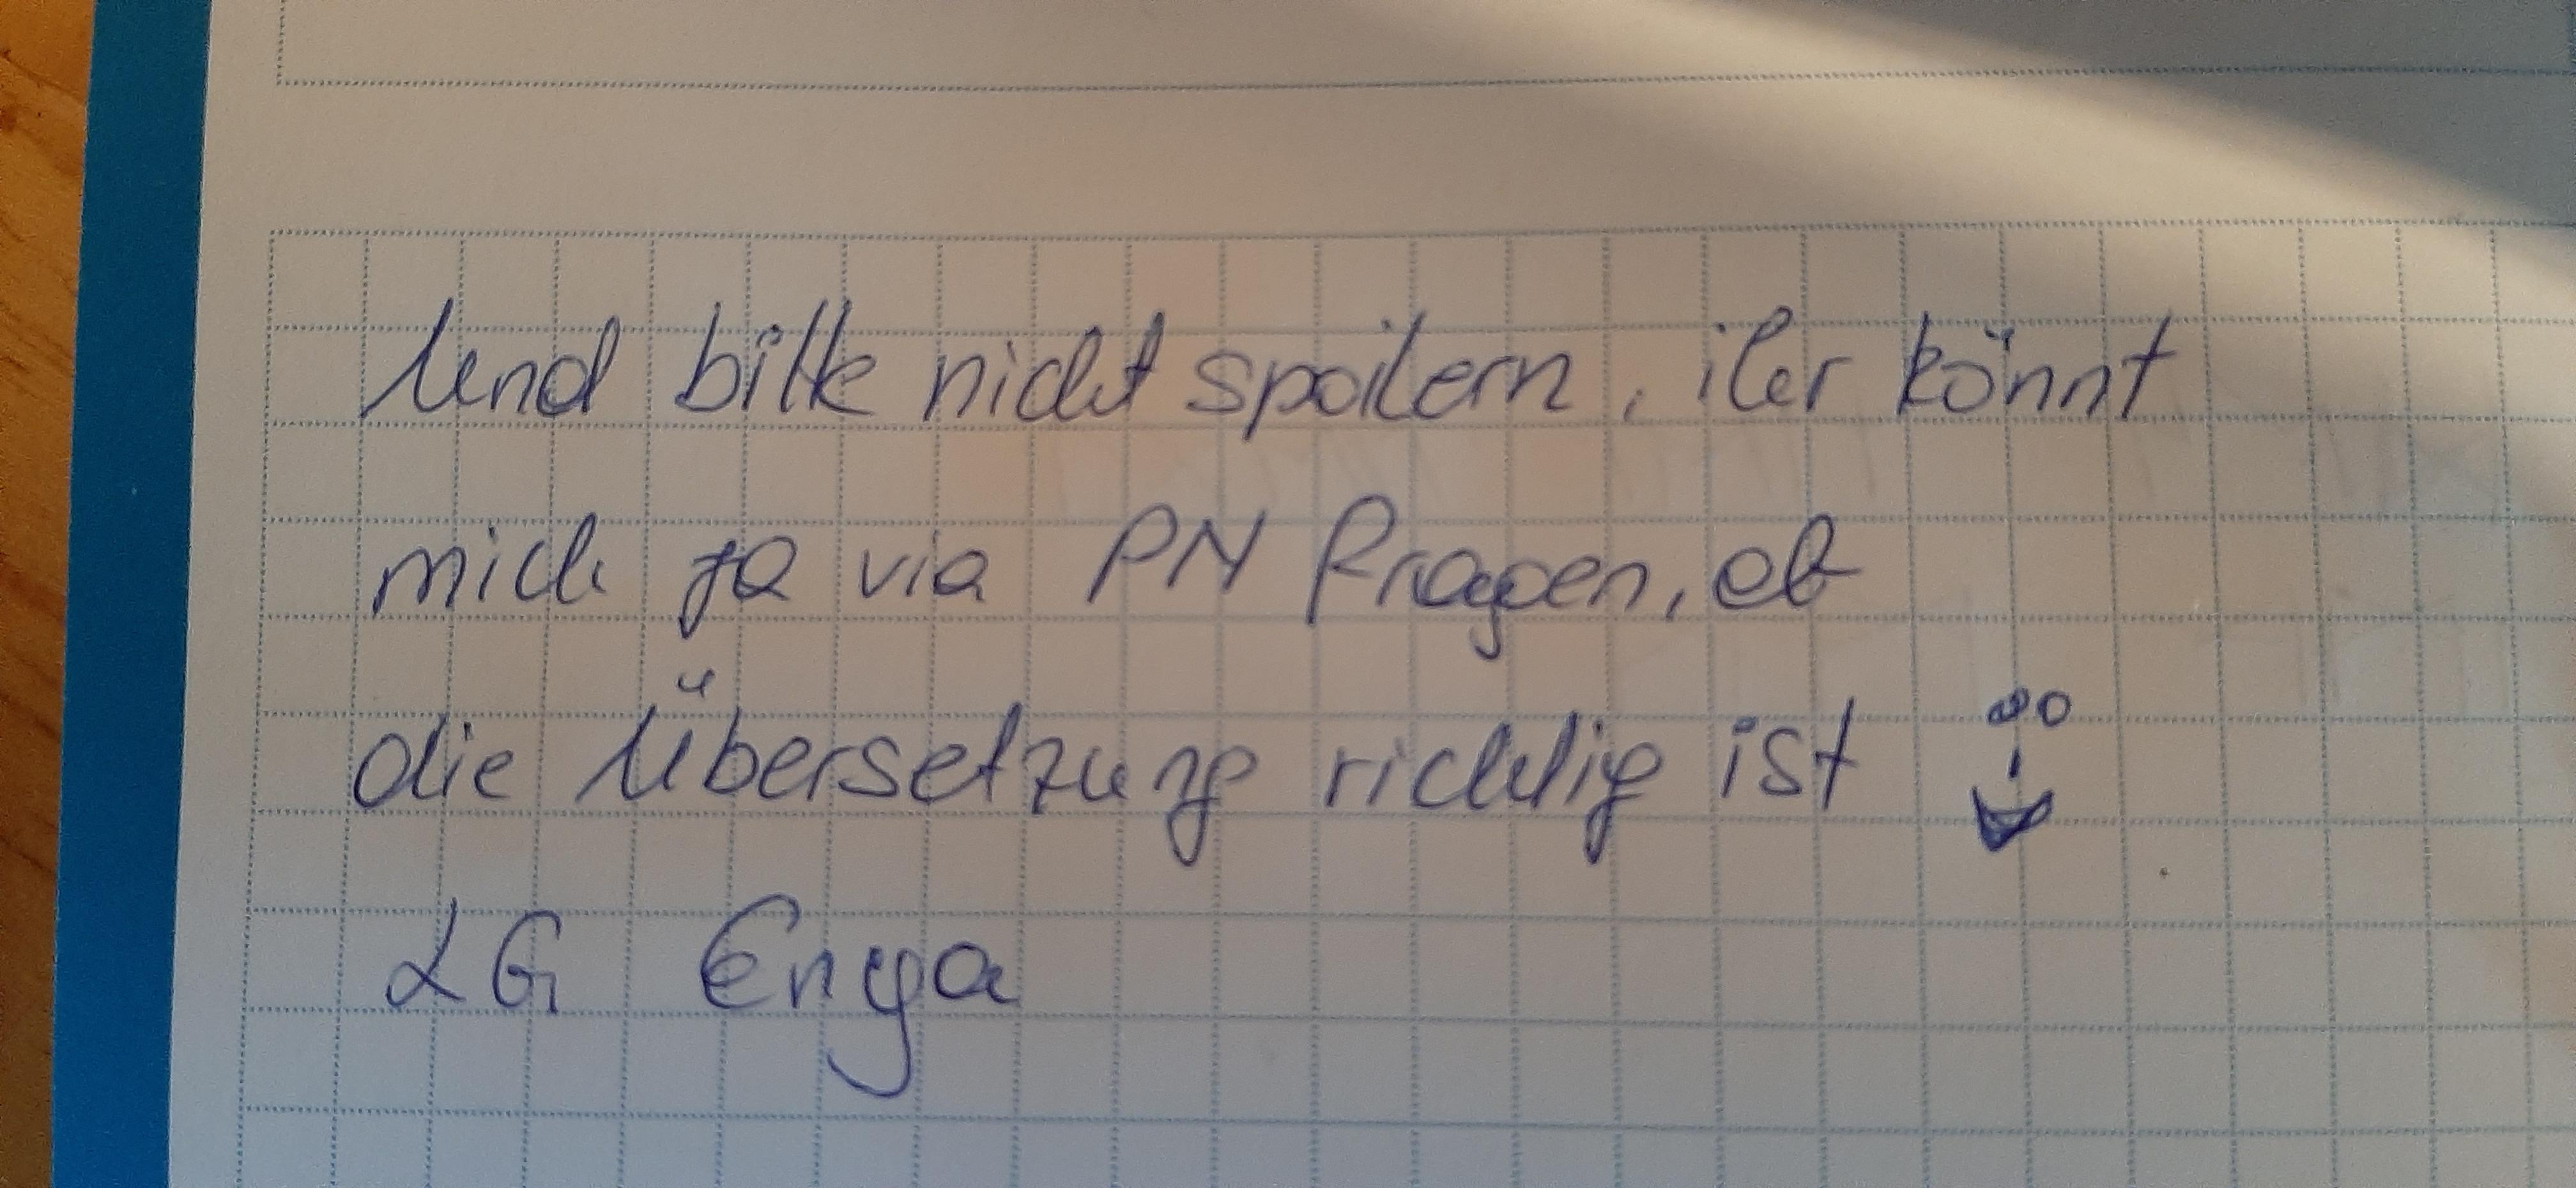 Und bitte nicht spoilern, ihr könnt
mich ja via PN fragen, ob
die Übersetzung richtig ist
LG Enya